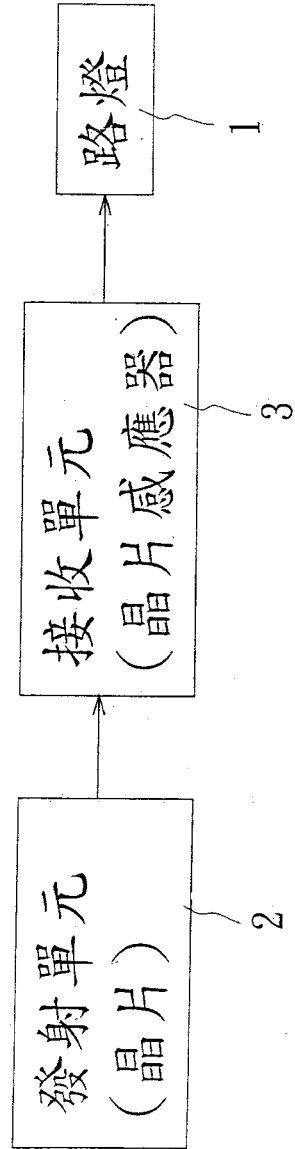 發射單元
(晶片)
2
接收單元
(晶片感應器)
3
路燈
1